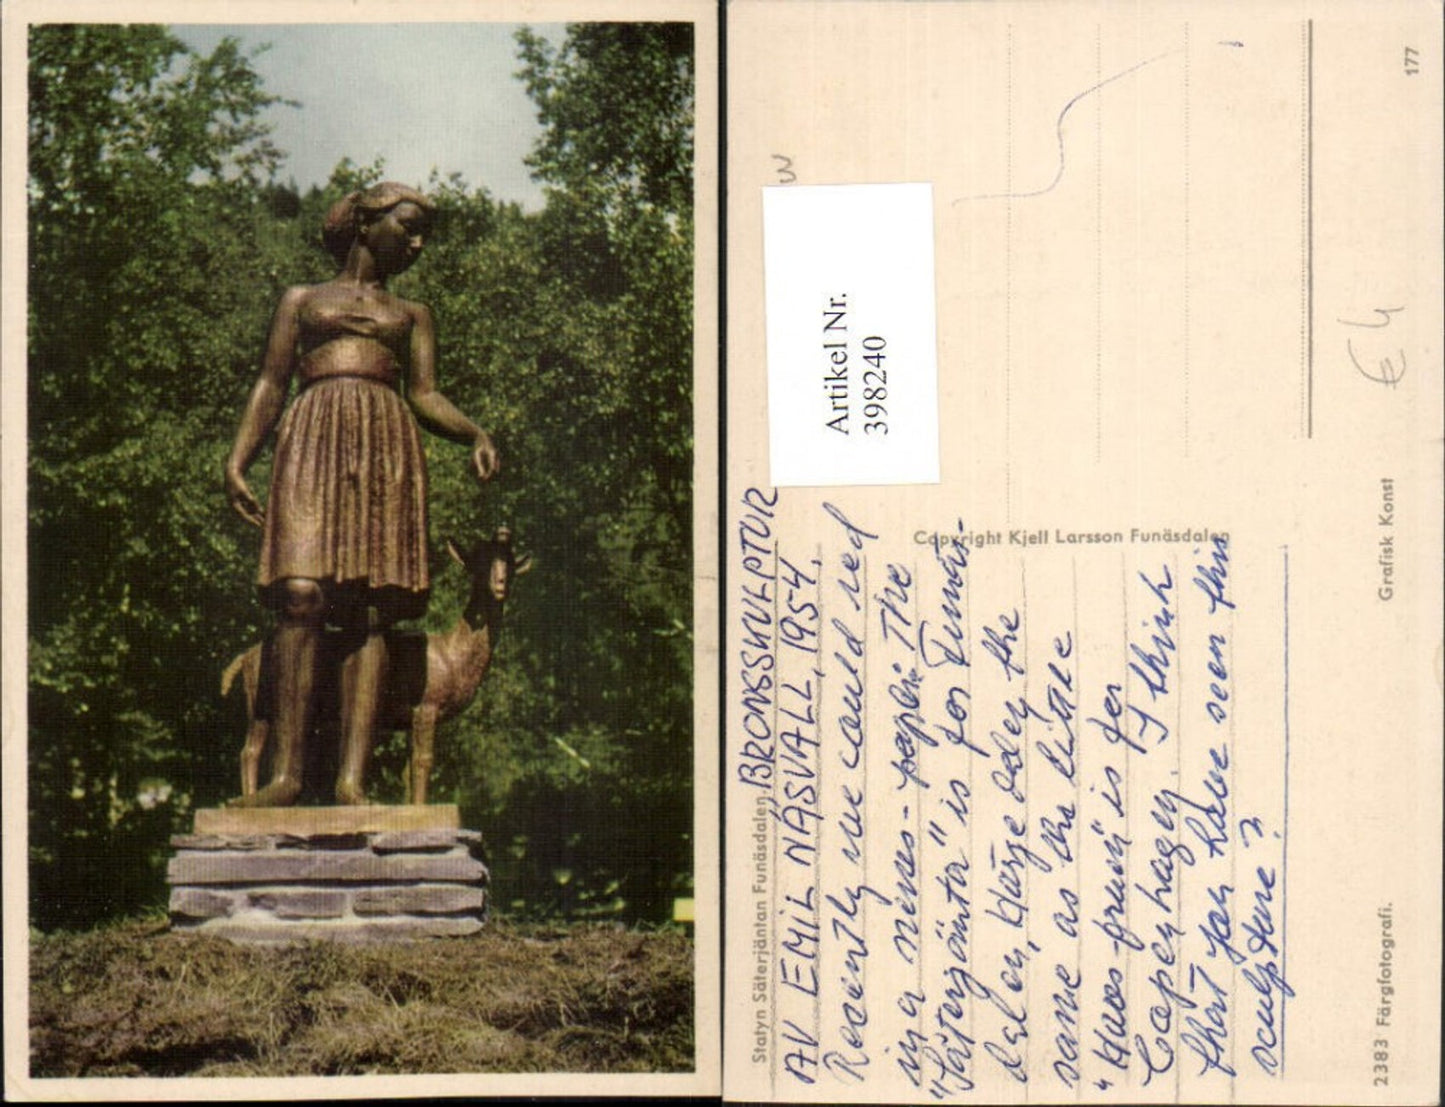 Statyn Säterjäntan Funäsdalen. "BRONSSKULPTUR
AV EMIL NÄSVALL, 1954.
Recently we could red
in a news-paper: The
"Säterjänta" is for Funäs-
dalen, Härjedalen the
same as the little
is for
Copenhagen. I think
that you have seen this
sculpture?
Copyright Kjell Larsson Funäsdalen
2383 Färgfotografi.
Grafisk Konst
177
Artikel Nr.
398240
€ 4